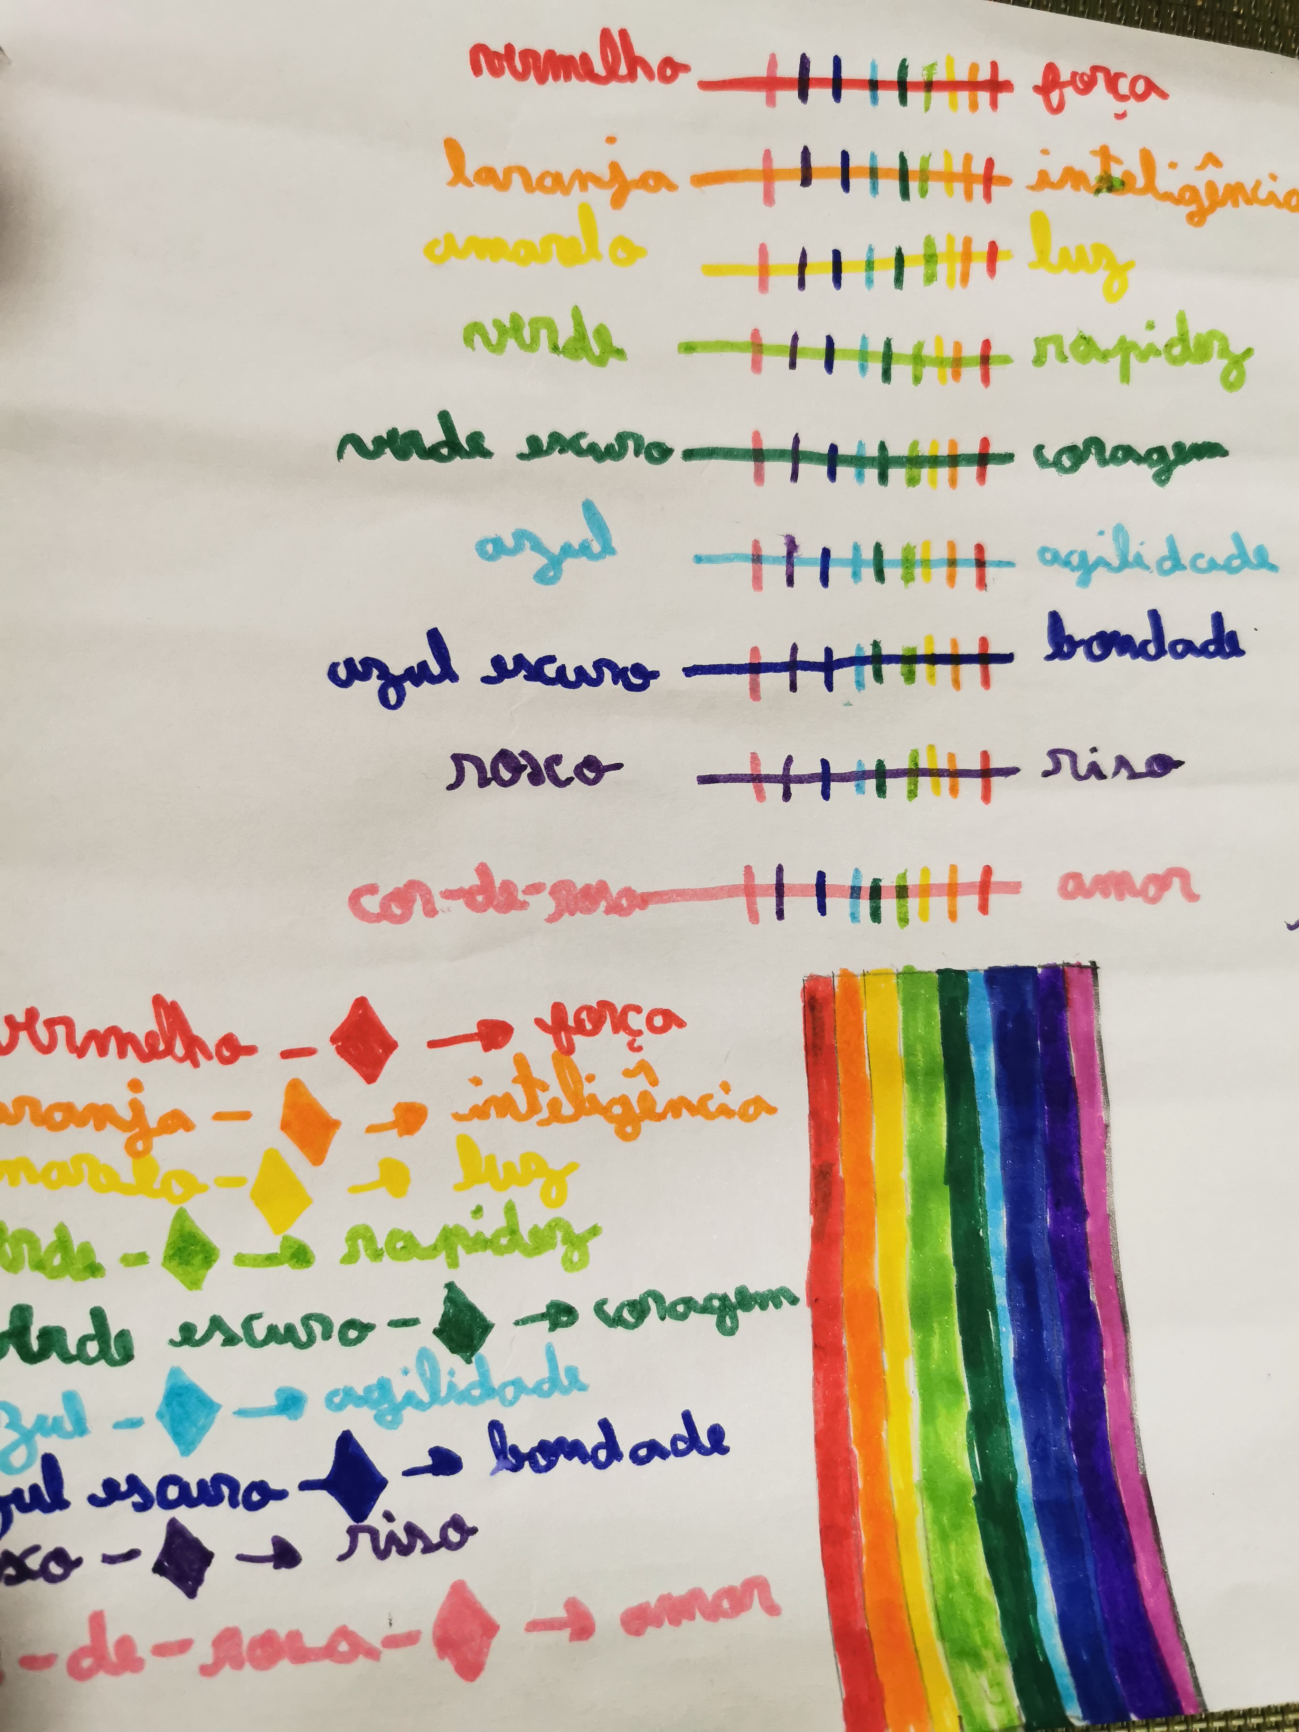 vermelho força
laranja inteligência
amarelo luz
verde rapidez
verde escuro coragem
azul agilidade
azul escuro bondade
roxo riso
cor-de-rosa amor
vermelho - → força
aranja - → inteligência
marelo - → luz
erde - → rapidez
verde escuro - → coragem
zul - → agilidade
zul escuro - → bondade
xo - → riso
-de-rosa - → amor